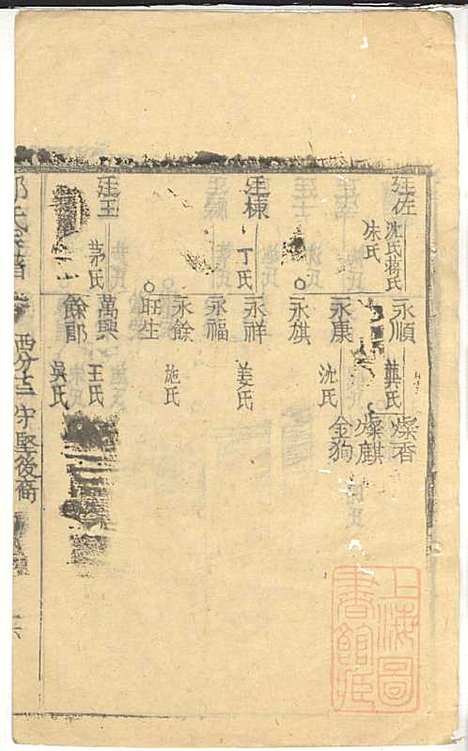 廷佐
沈氏蔣氏
朱氏
永順
龔氏
燦香
燦麒
永康
沈氏
金狗
永祺
廷棟
丁氏
永祥
姜氏
永福
永餘
施氏
旺生
廷玉
茅氏
萬興
王氏
餘郎
吳氏
氏宗譜 卷 西分十二 中堅後裔
上海圖書館藏